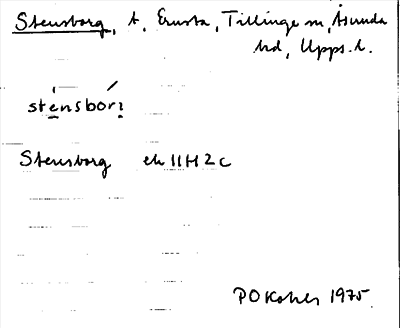 Stensborg, t. Ernsta, Tillinge sn, Åsunda
hd, Upps. l.
sténsbór̨
Stensborg ek 11H2c
1975